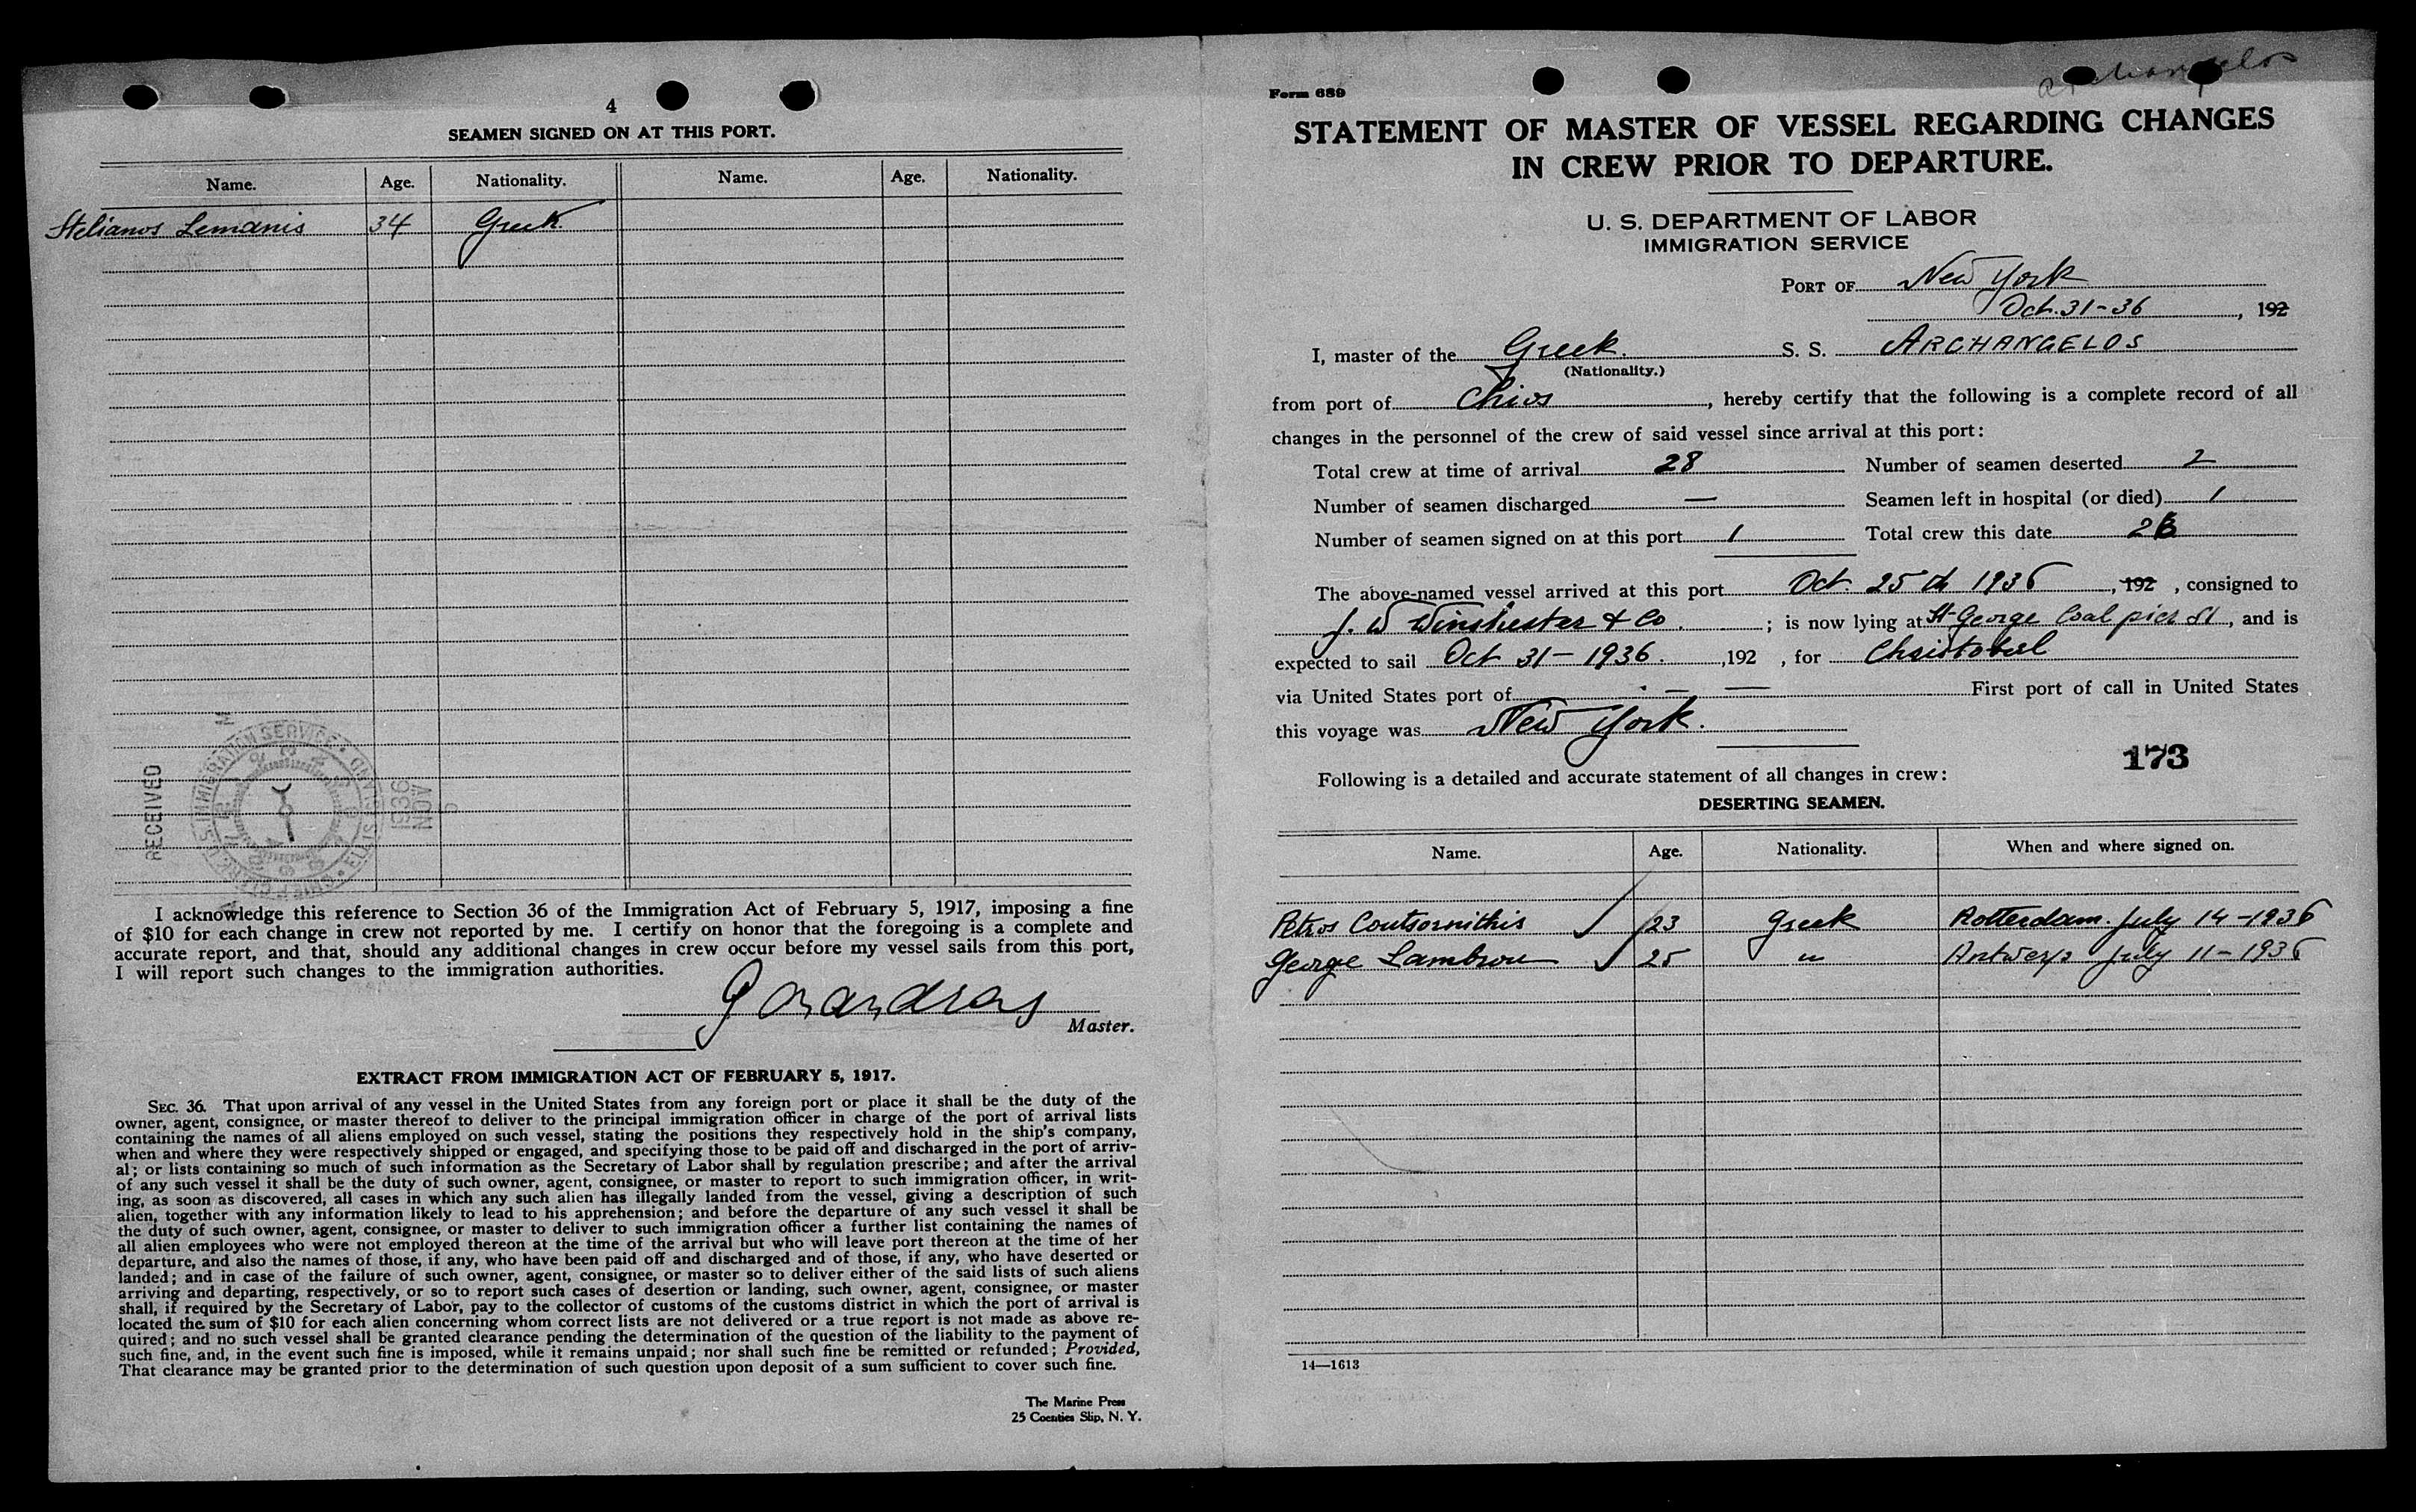 4
SEAMEN SIGNED ON AT THIS PORT.
Name. Age. Nationality. Name. Age. Nationality.
Stelianos Lemanis 34 Greek
RECEIVED
IMMIGRATION SERVICE
1936
NOV
I acknowledge this reference to Section 36 of the Immigration Act of February 5, 1917, imposing a fine
of $10 for each change in crew not reported by me. I certify on honor that the foregoing is a complete and
accurate report, and that, should any additional changes in crew occur before my vessel sails from this port,
I will report such changes to the immigration authorities.
Master.
EXTRACT FROM IMMIGRATION ACT OF FEBRUARY 5, 1917.
SEC. 36. That upon arrival of any vessel in the United States from any foreign port or place it shall be the duty of the
owner, agent, consignee, or master thereof to deliver to the principal immigration officer in charge of the port of arrival lists
containing the names of all aliens employed on such vessel, stating the positions they respectively hold in the ship's company,
when and where they were respectively shipped or engaged, and specifying those to be paid off and discharged in the port of arriv-
al; or lists containing so much of such information as the Secretary of Labor shall by regulation prescribe; and after the arrival
of any such vessel it shall be the duty of such owner, agent, consignee, or master to report to such immigration officer, in writ-
ing, as soon as discovered, all cases in which any such alien has illegally landed from the vessel, giving a description of such
alien, together with any information likely to lead to his apprehension; and before the departure of any such vessel it shall be
the duty of such owner, agent, consignee, or master to deliver to such immigration officer a further list containing the names of
all alien employees who were not employed thereon at the time of the arrival but who will leave port thereon at the time of her
departure, and also the names of those, if any, who have been paid off and discharged and of those, if any, who have deserted or
landed; and in case of the failure of such owner, agent, consignee, or master so to deliver either of the said lists of such aliens
arriving and departing, respectively, or so to report such cases of desertion or landing, such owner, agent, consignee, or master
shall, if required by the Secretary of Labor, pay to the collector of customs of the customs district in which the port of arrival is
located the sum of $10 for each alien concerning whom correct lists are not delivered or a true report is not made as above re-
quired; and no such vessel shall be granted clearance pending the determination of the question of the liability to the payment of
such fine, and, in the event such fine is imposed, while it remains unpaid; nor shall such fine be remitted or refunded; Provided,
That clearance may be granted prior to the determination of such question upon deposit of a sum sufficient to cover such fine.
The Marine Press
25 Coenties Slip, N. Y.
Archangelos
Form 689
STATEMENT OF MASTER OF VESSEL REGARDING CHANGES
IN CREW PRIOR TO DEPARTURE.
U. S. DEPARTMENT OF LABOR
IMMIGRATION SERVICE
PORT OF New York
Oct. 31-36, 192
I, master of the Greek. S. S. ARCHANGELOS
(Nationality.)
from port of Chios, hereby certify that the following is a complete record of all
changes in the personnel of the crew of said vessel since arrival at this port:
Total crew at time of arrival 28 Number of seamen deserted 2
Number of seamen discharged — Seamen left in hospital (or died) 1
Number of seamen signed on at this port 1 Total crew this date 26
The above-named vessel arrived at this port Oct. 25th 1936, 192 , consigned to
J. W Winshester & Co. ; is now lying at St-George Coal pier St, and is
expected to sail Oct 31-1936. ,192 , for Christobal
via United States port of — — First port of call in United States
this voyage was New York.
173
Following is a detailed and accurate statement of all changes in crew:
DESERTING SEAMEN.
Name. Age. Nationality. When and where signed on.
Petros Coutsornithis 23 Greek Rotterdam. July 14-1936
George Lambrou 25 " Antwerp July 11-1936
14—1613